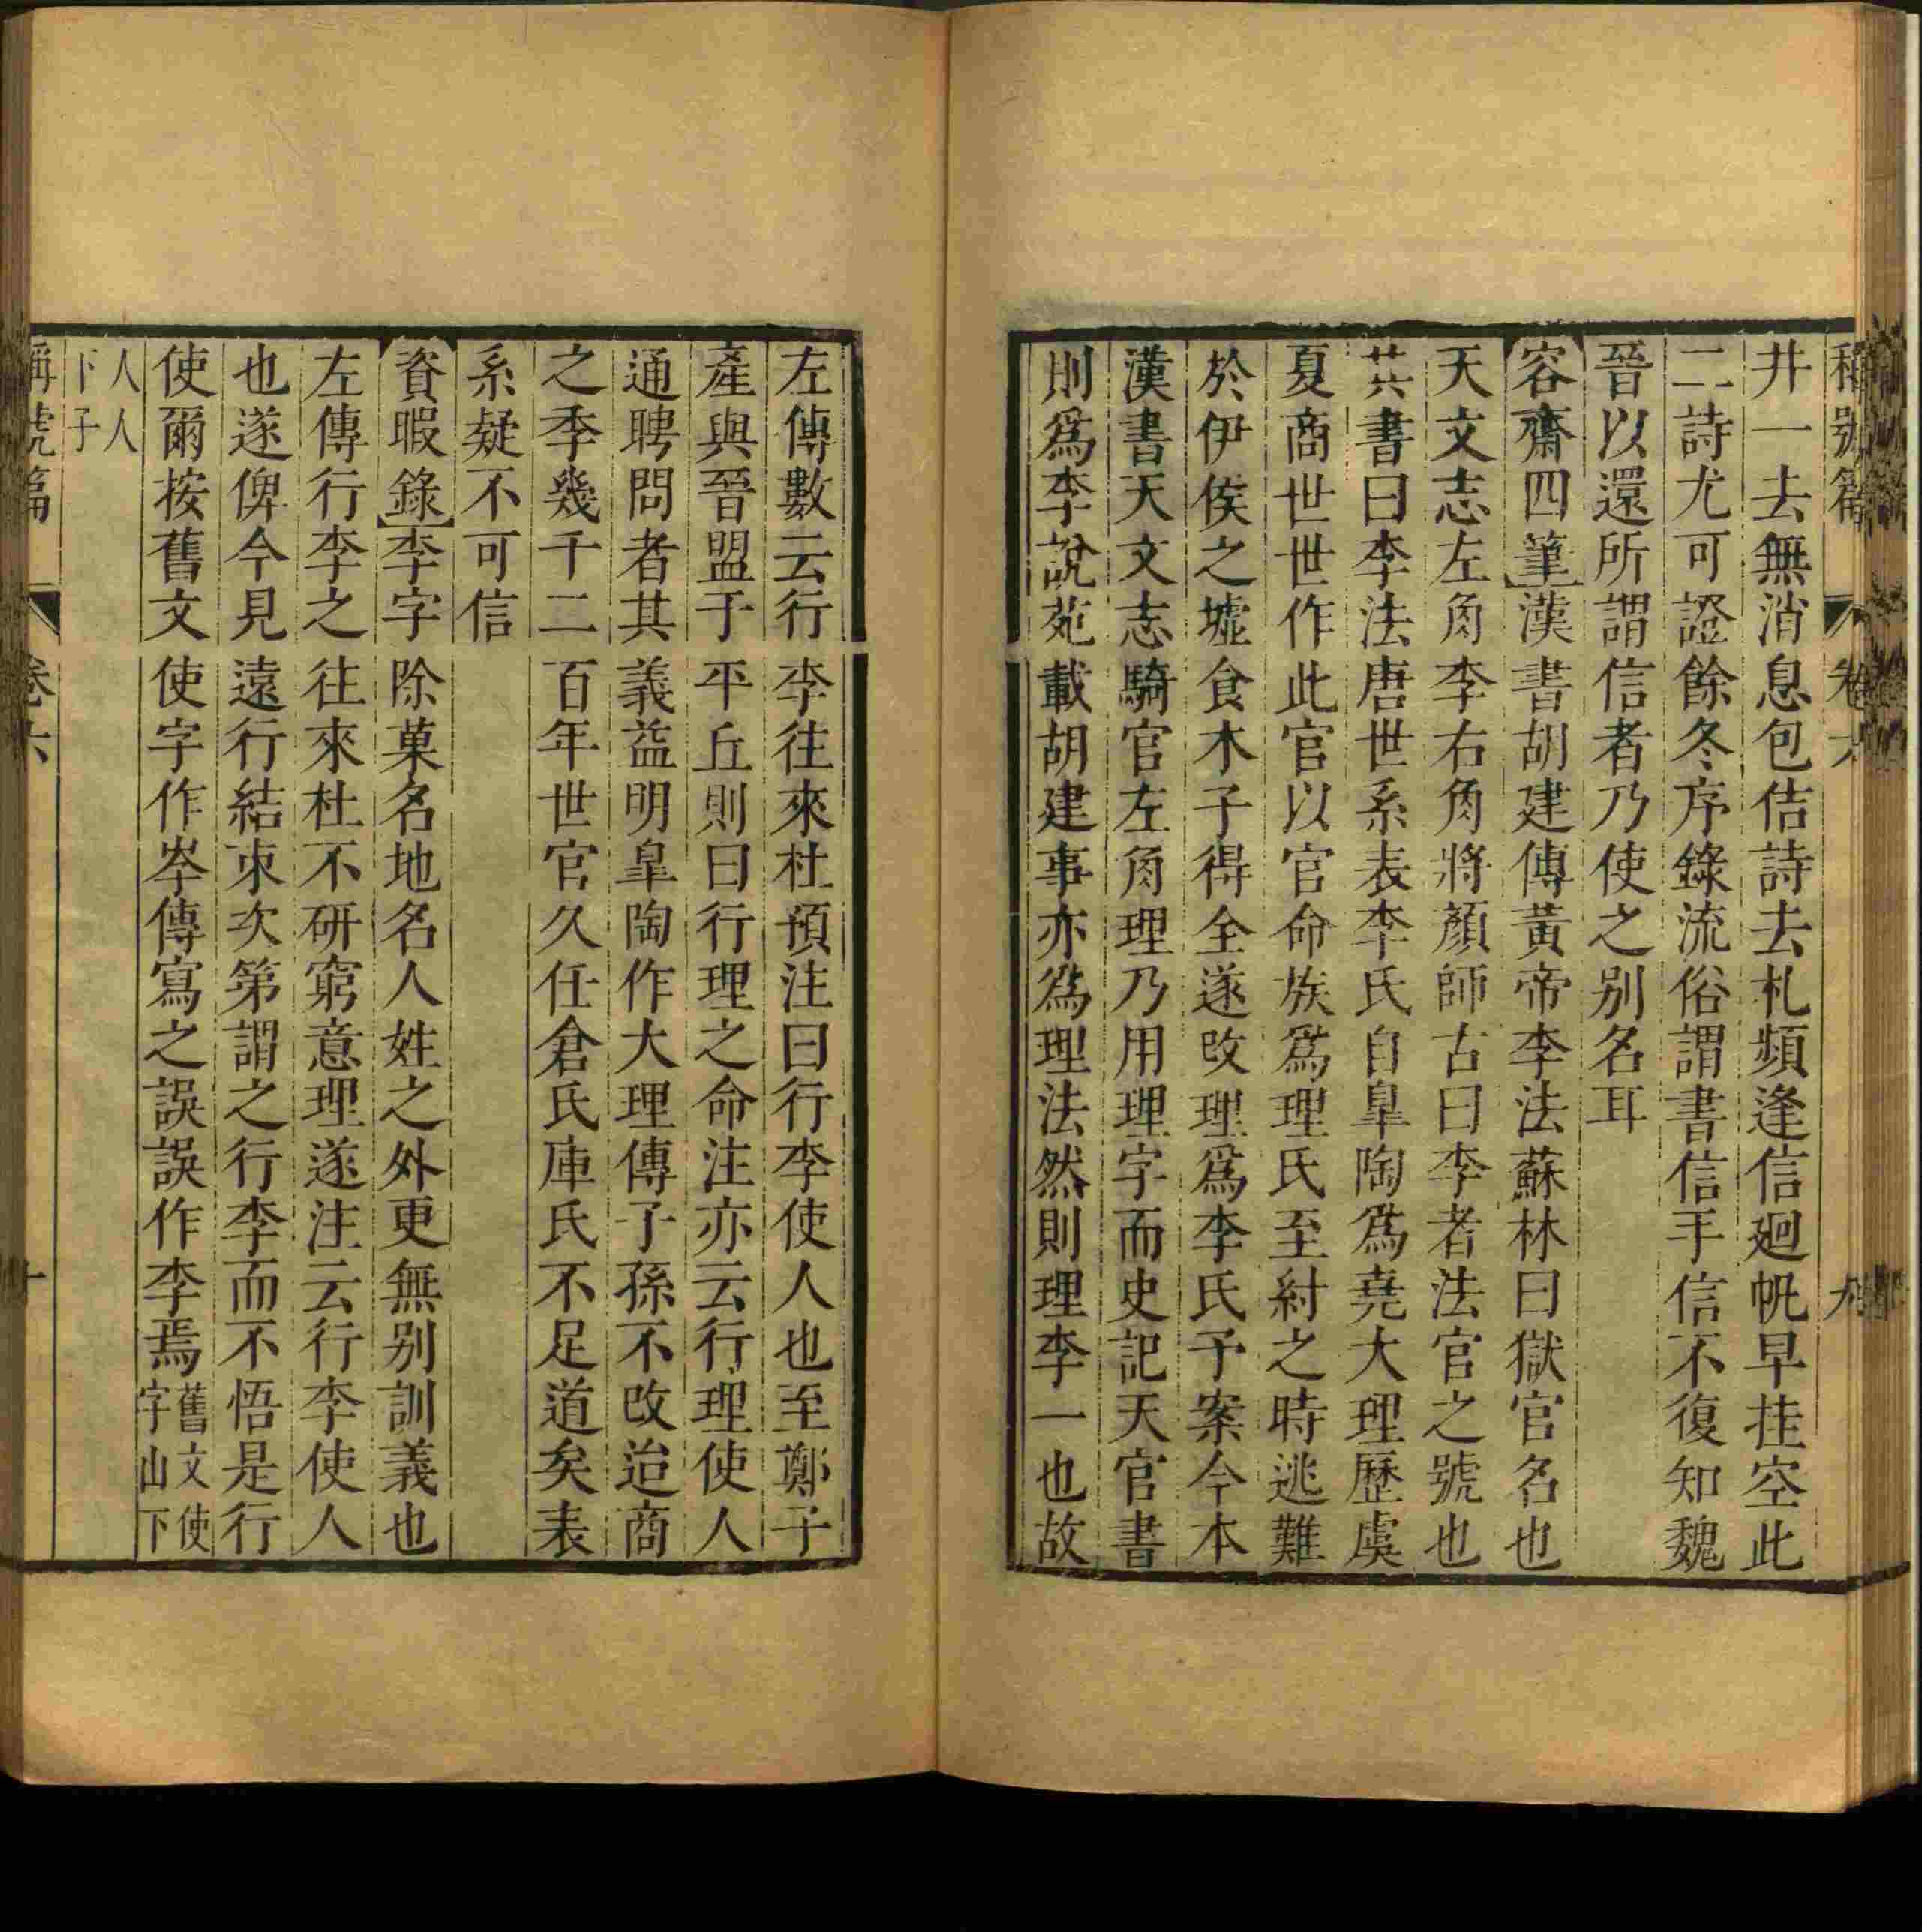 稱號篇 卷六 九
井一去無消息包佶詩去札頻逢信廻帆早挂空此
二詩尤可證餘冬序錄流俗謂書信手信不復知魏
晉以還所謂信者乃使之别名耳
容齋四筆漢書胡建傳黃帝李法蘇林曰獄官名也
天文志左角李右角將顏師古曰李者法官之號也
其書曰李法唐世系表李氏自臯陶爲堯大理歷虞
夏商世世作此官以官命族爲理氏至紂之時逃難
於伊侯之墟食木子得全遂改理爲李氏予案今本
漢書天文志騎官左角理乃用理字而史記天官書
則爲李說苑載胡建事亦爲理法然則理李一也故
左傳數云行李往來杜預注曰行李使人也至鄭子
產與晉盟于平丘則曰行理之命注亦云行理使人
通聘問者其義益明臯陶作大理傳子孫不改迨商
之季幾千二百年世官久任倉氏庫氏不足道矣表
系疑不可信
資暇錄李字除菓名地名人姓之外更無别訓義也
左傳行李之往來杜不研窮意理遂注云行李使人
也遂俾今見遠行結束次第謂之行李而不悟是行
使爾按舊文使字作岺傳寫之誤誤作李焉舊文使
字山下
人人
下子
稱號篇 卷六 十